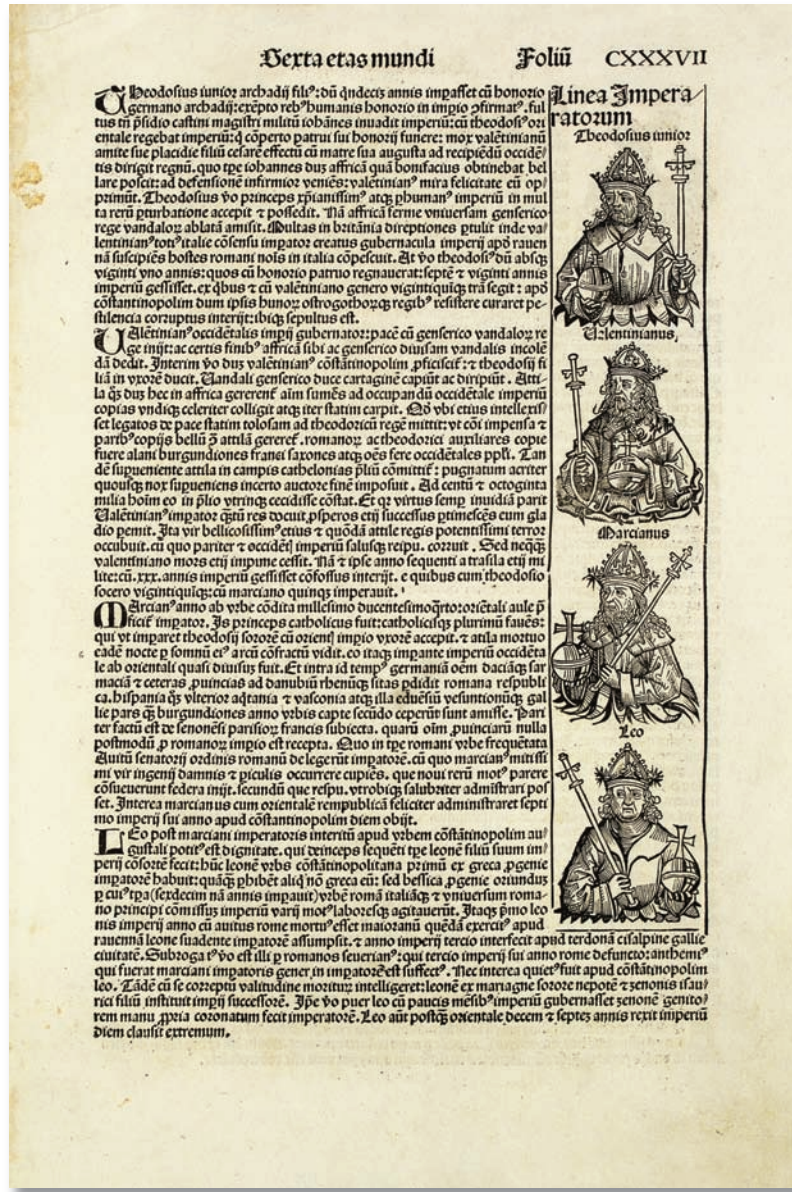 Sexta etas mundi Foliū CXXXVII
Linea Impera
ratorum
Theodosius iunior
Valentinianus
Marcianus
Leo
THeodosius iunior archadij filiꝰ: dū q̄ndeciꝫ annis imꝑasset cū honorio
germano archadij: exēpto rebꝰ humanis honorio in imꝑio ꝯfirmatꝰ. ful
tus tn̄ p̄sidio castini magistri militū iohānes inuadit imperiū: cū theodosiꝰ ori
entale regebat imperiū: q̄ cōperto patrui sui honorij funere: mox valētinianū
amite sue placidie filiū cesarē effectū cū matre sua augusta ad recipiēdū occidē
tis dirigit regnū. quo tꝑe iohannes dus affricā quā bonifacius obtinebat bel
lare poscit: ad defensionē infirmior veniēs: valētinianꝰ mira felicitate eū op
primūt. Theodosius v̄o princeps xp̄ianissimꝰ atqꝫ ꝑhumanꝰ imperiū in mul
ta rerū ꝑturbatione accepit ⁊ possedit. Nā affricā ferme vniuersam genserico
rege vandaloꝝ ablatā amisit. Multas in britānia direptiones ꝑtulit inde va
lentinianꝰ totꝰ italie cōsensu imꝑator creatus gubernacula imperij apd̄ rauen
nā suscipiēs hostes romani nois in italia cōpescuit. At v̄o theodosiꝰ dū absqꝫ
viginti vno annis: quos cū honorio patruo regnauerat: septē ⁊ viginti annis
imperiū gessisset. ex q̄bus ⁊ cū valētiniano genero vigintiquiqꝫ trāsegit: apd̄
cōstantinopolim dum ipsis hunoꝝ ostrogothoꝝqꝫ regibꝰ resistere curaret pe
stilencia corruptus interijt: ibiqꝫ sepultus est.
VAlētinianꝰ occidētalis imꝑij gubernator: pacē cū genserico vandaloꝝ re
ge inijt: ac certis finibꝰ affricā sibi ac genserico diuisam vandalis incolē
dā dedit. Interim v̄o dus valētinianꝰ cōstātinopolim ꝓficiscit̄: ⁊ theodosij fi
liā in vxorē ducit. Vandali genserico duce cartaginē capiūt ac diripiūt. Atti
la q̄s duꝫ hec in affrica gererent̄ aīm sumēs ad occupandū occidētale imperiū
copias vndiqꝫ celeriter colligit atqꝫ iter statim carpit. Qd̄ vbi etius intellexis
set legatos de pace statim tolosam ad theodoricū regē mittit: vt cōi impensa ⁊
paribꝰ copijs bellū ꝓ attilā gereret̄. romanoꝝ ac theodorici auxiliares copie
fuere alani burgundiones franci saxones atqꝫ oēs fere occidētales pp̄li. Tan
dē suꝑueniente attila in campis cathelonias p̄liū cōmittit̄: pugnatum acriter
quousqꝫ nox suꝑueniens incerto auctore finē imposuit. Ad centū ⁊ octoginta
milia hoīm eo in p̄lio vtrinqꝫ cecidisse cōstat. Et qꝛ virtus semꝑ inuidiā parit
Valētinianꝰ imꝑator q̄tū res docuit ꝓsperos etij successus ꝑtimescēs eum gla
dio ꝑemit. Ita vir bellicosissimꝰ etius ⁊ quōdā attile regis potentissimi terror
occubuit. cū quo pariter ⁊ occidētl imperiū salusqꝫ reipu. corruit. Sed neqꝫ
valentiniano mors etij impune cessit. Nā ⁊ ipse anno sequenti a trasila etij mi
lite: cū. xxx. annis imperiū gessisset cōfossus interijt. e quibus cum theodosio
socero vigintiquiqꝫ: cū marciano quinqꝫ imperauit.
MArcianꝰ anno ab vrbe cōdita millesimo ducentesimoq̄rto: oriētali aule p̄
ficit̄ imꝑator. Is princeps catholicus fuit: catholicisqꝫ plurimū fauēs:
qui vt imꝑaret theodosij sororē cū orientl imꝑio vxorē accepit. ⁊ atila mortuo
eadē nocte ꝑ somnū eiꝰ arcū cōfractū vidit. eo itaqꝫ imꝑante imperiū occidēta
le ab orientali quasi diuisus fuit. Et intra id tempꝰ germaniā oēm daciāqꝫ sar
maciā ⁊ ceteras ꝓuincias ad danubiū rhenūqꝫ sitas ꝑdidit romana respubli
ca. hispania q̄s vlterior aq̄tania ⁊ vasconia atqꝫ illa eduēsiū vesuntionūqꝫ gal
lie pars q̄s burgundiones anno vrbis capte secūdo ceperūt sunt amisse. Pari
ter factū est de senonēsi parisioꝝ francis subiecta. quarū oīm ꝓuinciarū nulla
postmodū ꝓ romanoꝝ imꝑio est recepta. Quo in tꝑe romani vrbe frequētata
Auitū senatorij ordinis romanū delegerūt imꝑatorē. cū quo marcianꝰ mitissi
mi vir ingenij damnis ⁊ ꝑiculis occurrere cupiēs. que noui rerū motꝰ parere
cōsueuerunt federa inijt. secundū que respu. vtrobiqꝫ salubriter admīstrari pos
set. Interea marcianus cum orientalē rempublicā feliciter administraret septi
mo imperij sui anno apud cōstantinopolim diem obijt.
LEo post marciani imperatoris interitū apud vrbem cōstātinopolim au
gustali potitꝰ est dignitate. qui deinceps sequēti tꝑe leonē filiū suum im
perij cōsortē fecit: hūc leonē vrbs cōstātinopolitana primū ex greca ꝓgenie
imꝑatorē habuit: quāqꝫ ꝑhibēt aliqd̄ nō greca eū: sed bessica ꝓgenie oriundus
ꝑ cuiꝰ tꝑa (sexdecim nā annis imꝑauit) vrbē romā italiāqꝫ ⁊ vniuersum roma
no principi cōmissuꝫ imperiū varij motꝰ laboresqꝫ agitauerūt. Itaqꝫ p̄mo leo
nis imperij anno cū auitus rome mortuꝰ esset maioranū quēdā exercitꝰ apud
rauennā leone suadente imꝑatorē assumpsit. ⁊ anno imperij tercio interfecit apud terdonā cisalpine gallie
ciuitatē. Subrogatꝰ v̄o est illi ꝑ romanos seuerianꝰ: qui tercio imperij sui anno rome defuncto: anthemiꝰ
qui fuerat marciani imꝑatoris gener, in imꝑatorē est suffectꝰ. Nec interea quietꝰ fuit apud cōstātinopolim
leo. Tādē cū se correptū valitudine moriturꝫ intelligeret: leonē ex mariagne sorore nepotē ⁊ zenonis isau
rici filiū instituit imꝑij successorē. Ip̄e v̄o puer leo cū paucis mēsibꝰ imperiū gubernasset zenonē genito
rem manu ꝓpria coronatum fecit imperatorē. Leo aūt postqꝫ orientale decem ⁊ septeꝫ annis rexit imperiū
diem clausit extremum.